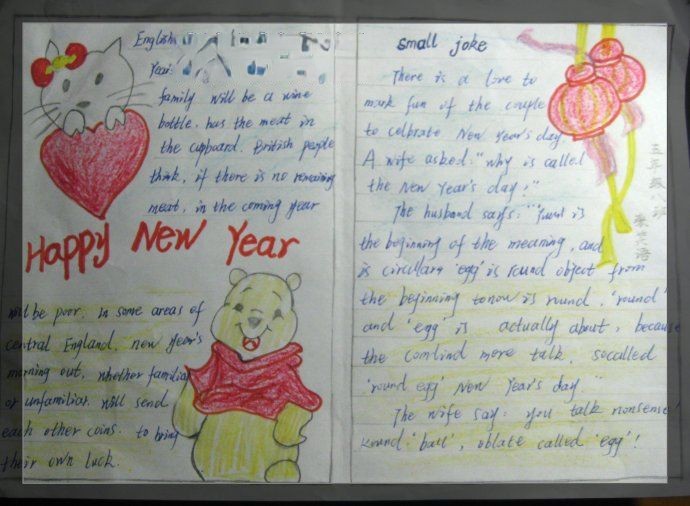 English
family will be a wine
bottle. has the meat in
the cupboard. British people
think, if there is no remaining
meat, in the coming year
Happy New Year
will be poor. in some areas of
central England, new year's
morning out, whether familiar
or unfamiliar. will send
each other coins. to bring
their own luck.
small joke
There is a love to
mark fun of the couple
to celbrate New Year's day.
A wife asked: "why is called
the New Year's day?"
The husband says: " is
the beginning of the meaning, and
is circulary 'egg' is round object from
the beginning to now is round. 'round'
and 'egg' is actually about, because
the comlind mere talk, socalled
'round egg' New Year's day."
The wife say: you talk nonsense!
Round: 'ball', oblate called 'egg'!
五年级八班